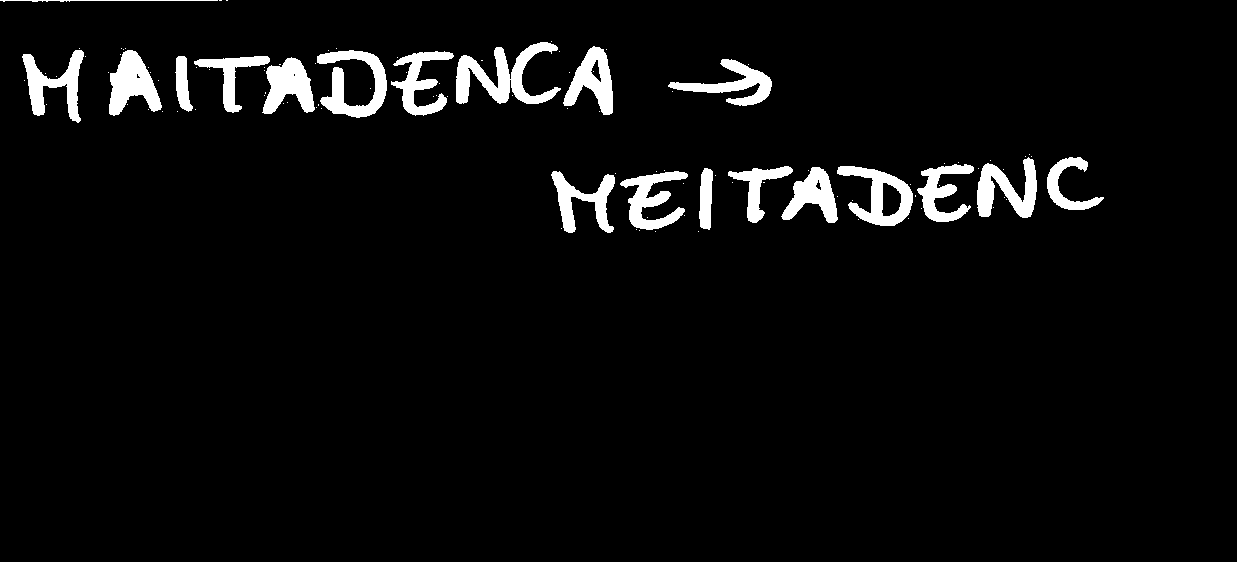 MAITADENCA →
MEITADENC